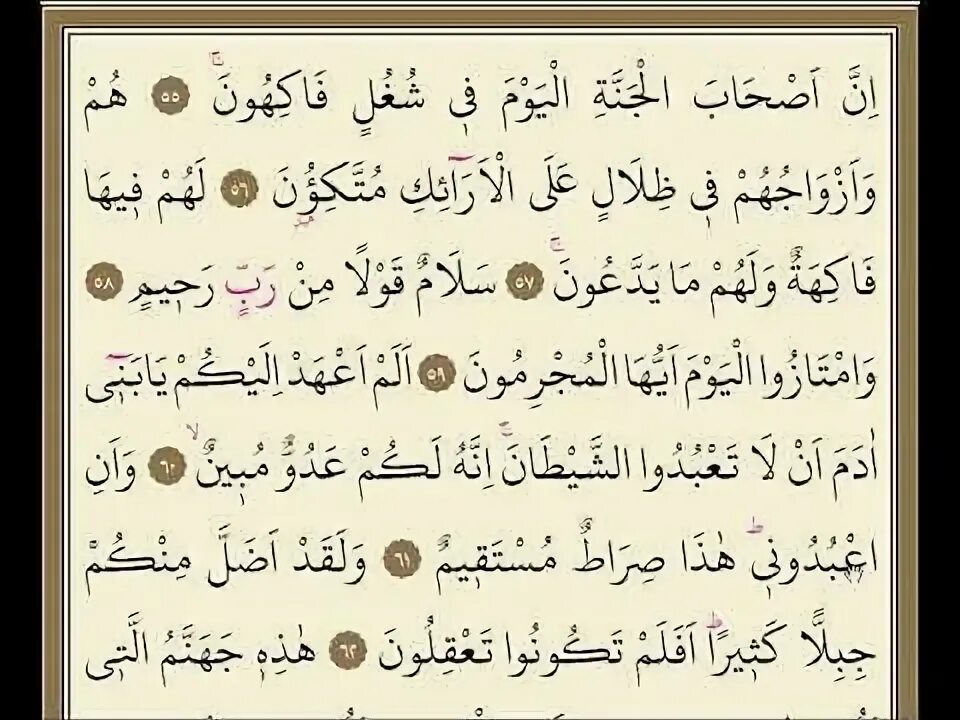 اِنَّ اَصْحَابَ الْجَنَّةِ الْيَوْمَ فِي شُغُلٍ فَاكِهُونَۚ ﴿٥٥﴾ هُمْ
وَاَزْوَاجُهُمْ فِي ظِلَالٍ عَلَى الْاَرَٓائِكِ مُتَّكِؤُ۫نَ ﴿٥٦﴾ لَهُمْ فِيهَا
فَاكِهَةٌ وَلَهُمْ مَا يَدَّعُونَۚ ﴿٥٧﴾ سَلَامٌ قَوْلًا مِنْ رَبٍّ رَحِيمٍ ﴿٥٨﴾
وَامْتَازُوا الْيَوْمَ اَيُّهَا الْمُجْرِمُونَ ﴿٥٩﴾ اَلَمْ اَعْهَدْ اِلَيْكُمْ يَابَنِٓي
اٰدَمَ اَنْ لَا تَعْبُدُوا الشَّيْطَانَۚ اِنَّهُ لَكُمْ عَدُوٌّ مُبِينٌۙ ﴿٦٠﴾ وَاَنِ
اعْبُدُونِيۜ هٰذَا صِرَاطٌ مُسْتَقِيمٌ ﴿٦١﴾ وَلَقَدْ اَضَلَّ مِنْكُمْ
جِبِلًّا كَثِيرًاۜ اَفَلَمْ تَكُونُوا تَعْقِلُونَ ﴿٦٢﴾ هٰذِهِ جَهَنَّمُ الَّتِي